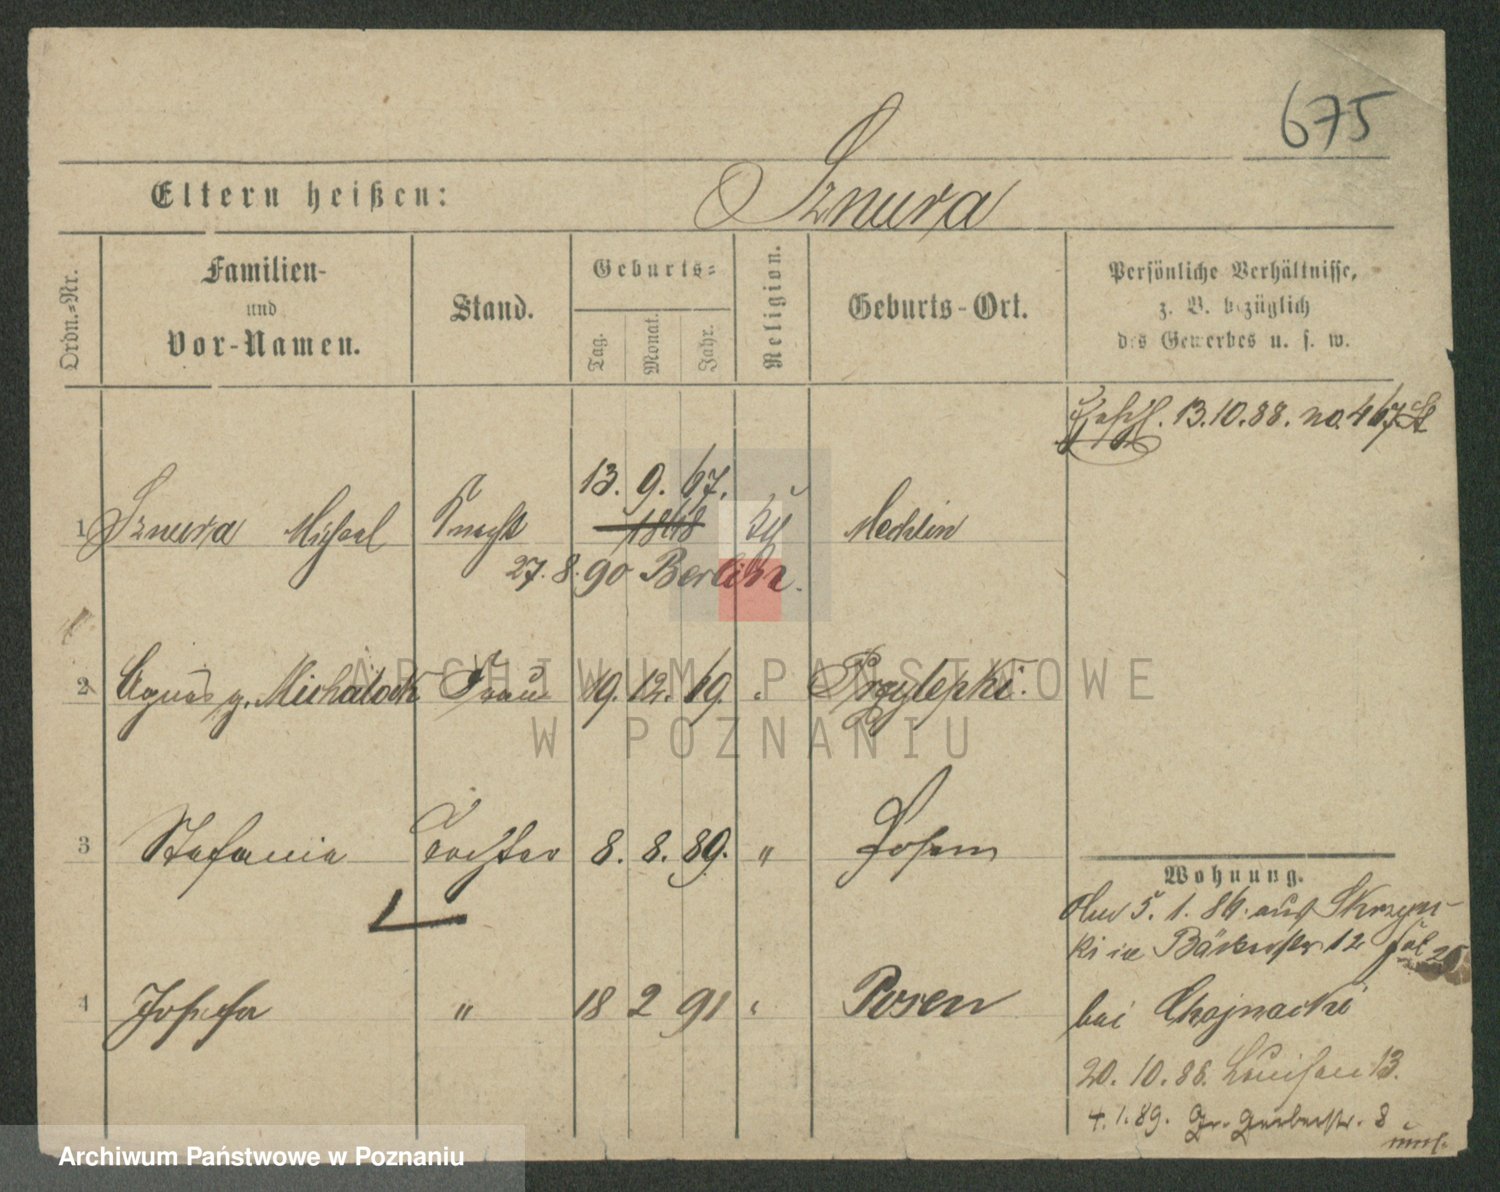 675
Eltern heißen: Sznura
Ordn.=Nr.
Familien-
und
Vor-Namen.
Stand.
Geburts=
Tag.
Monat.
Jahr.
Religion.
Geburts-Ort.
Persönliche Verhältnisse,
z. B. bezüglich
des Gewerbes u. s. w.
13.10.88. no. 467
13. 9. 67.
1 Sznura Michael Knecht 1868 kth Mechlin
27. 8. 90 Berlin.
2 Agnes g. Michalack Frau 19. 12. 69. " Przylepki.
3 Stefania Tochter 8. 8. 89. " Posen
4 Josefa " 18 2 91 " Posen
Wohnung.
5. 1. 86. aus Skrzyn-
ki in Bäckerstr. 12
bei Chojnacki
20. 10. 88. Louisen 13.
4. 1. 89. Gr. Gerberstr. 8
ARCHIWUM PAŃSTWOWE
W POZNANIU
Archiwum Państwowe w Poznaniu